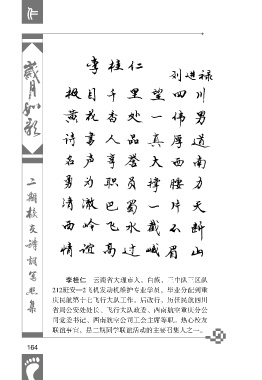 仁
岁月如歌
二期校友诗词写照集
李桂仁
刘进禄
极目千里望四川
黄花香处一伟男
诗书人品真厚道
名声享誉大西南
勇为职员撑腰力
清澈巴蜀一片天
西岭飞水截云断
情谊高过峨眉山
李桂仁 云南省大理市人，白族，三中队三区队
212班安—2飞机发动机维护专业学员，毕业分配到重
庆民航第十七飞行大队工作，后改行。历任民航四川
省局公安处处长、飞行大队政委、西南航空重庆分公
司党委书记、西南航空公司工会主席等职。热心校友
联谊事宜，是二期同学联谊活动的主要召集人之一。
164